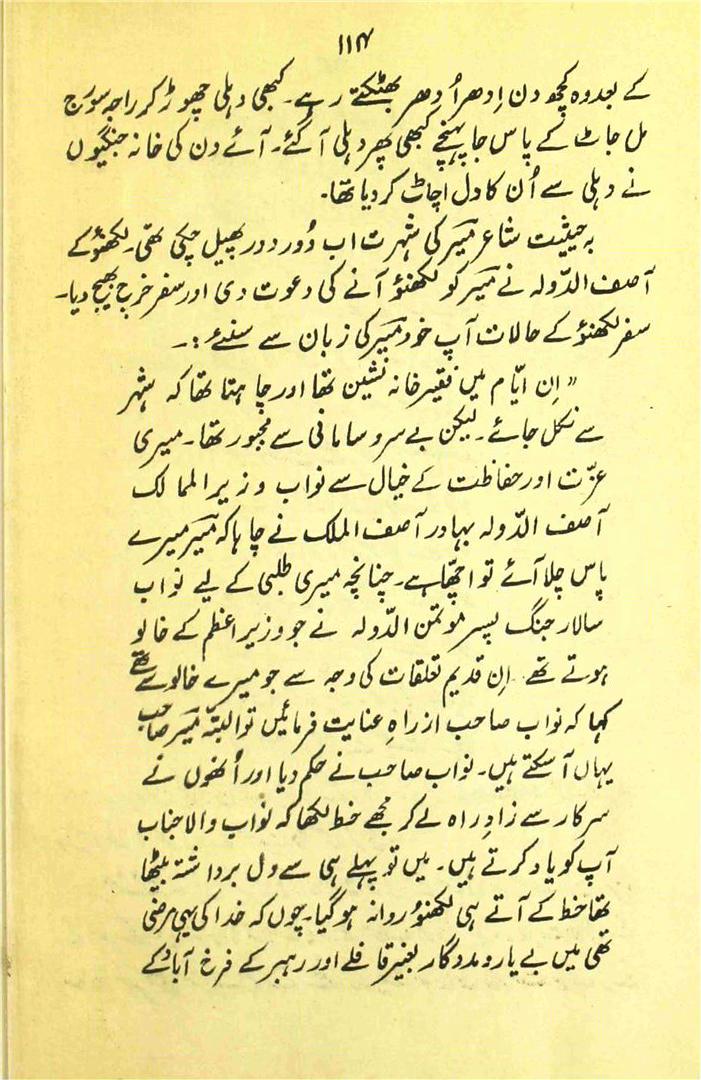 ۱۱۴
کے بعد وہ کچھ دن اِدھر اُدھر بھٹکتے رہے۔ کبھی دہلی چھوڑ کر راجہ سورج
مل جاٹ کے پاس جا پہنچے کبھی پھر دہلی آ گئے۔ آئے دن کی خانہ جنگیوں
نے دہلی سے اُن کا دل اچاٹ کر دیا تھا۔
بہ حیثیت شاعر میرؔ کی شہرت اب دُور دور پھیل چکی تھی۔ لکھنؤ کے
آصف الدّولہ نے میرؔ کو لکھنؤ آنے کی دعوت دی اور سفر خرچ بھیج دیا۔
سفر لکھنؤ کے حالات آپ خود میرؔ کی زبان سے سنیئے :۔
" اِن ایّام میں فقیر خانہ نشین تھا اور چاہتا تھا کہ شہر
سے نکل جائے۔ لیکن بے سر و سامانی سے مجبور تھا۔ میری
عزّت اور حفاظت کے خیال سے نواب وزیر الممالک
آصف الدّولہ بہادر آصف الملک نے چاہا کہ میرؔ میرے
پاس چلا آئے تو اچھّا ہے۔ چنانچہ میری طلبی کے لیے نواب
سالار جنگ پسر موتمن الدّولہ نے جو وزیر اعظم کے خالو
ہوتے تھے۔ اِن قدیم تعلقات کی وجہ سے جو میرے خالو سے تھے
کہا کہ نواب صاحب از راہِ عنایت فرمائیں تو البتّہ میرؔ صاحب
یہاں آ سکتے ہیں۔ نواب صاحب نے حکم دیا اور اُنھوں نے
سرکار سے زادِ راہ لے کر مجھے خط لکھا کہ نواب والا جناب
آپ کو یاد کرتے ہیں۔ میں تو پہلے ہی سے دل برداشتہ بیٹھا
تھا خط کے آتے ہی لکھنؤ روانہ ہو گیا۔ چوں کہ خدا کی یہی مرضی
تھی میں بے یار و مددگار بغیر قافلے اور رہبر کے فرخ آباد کے